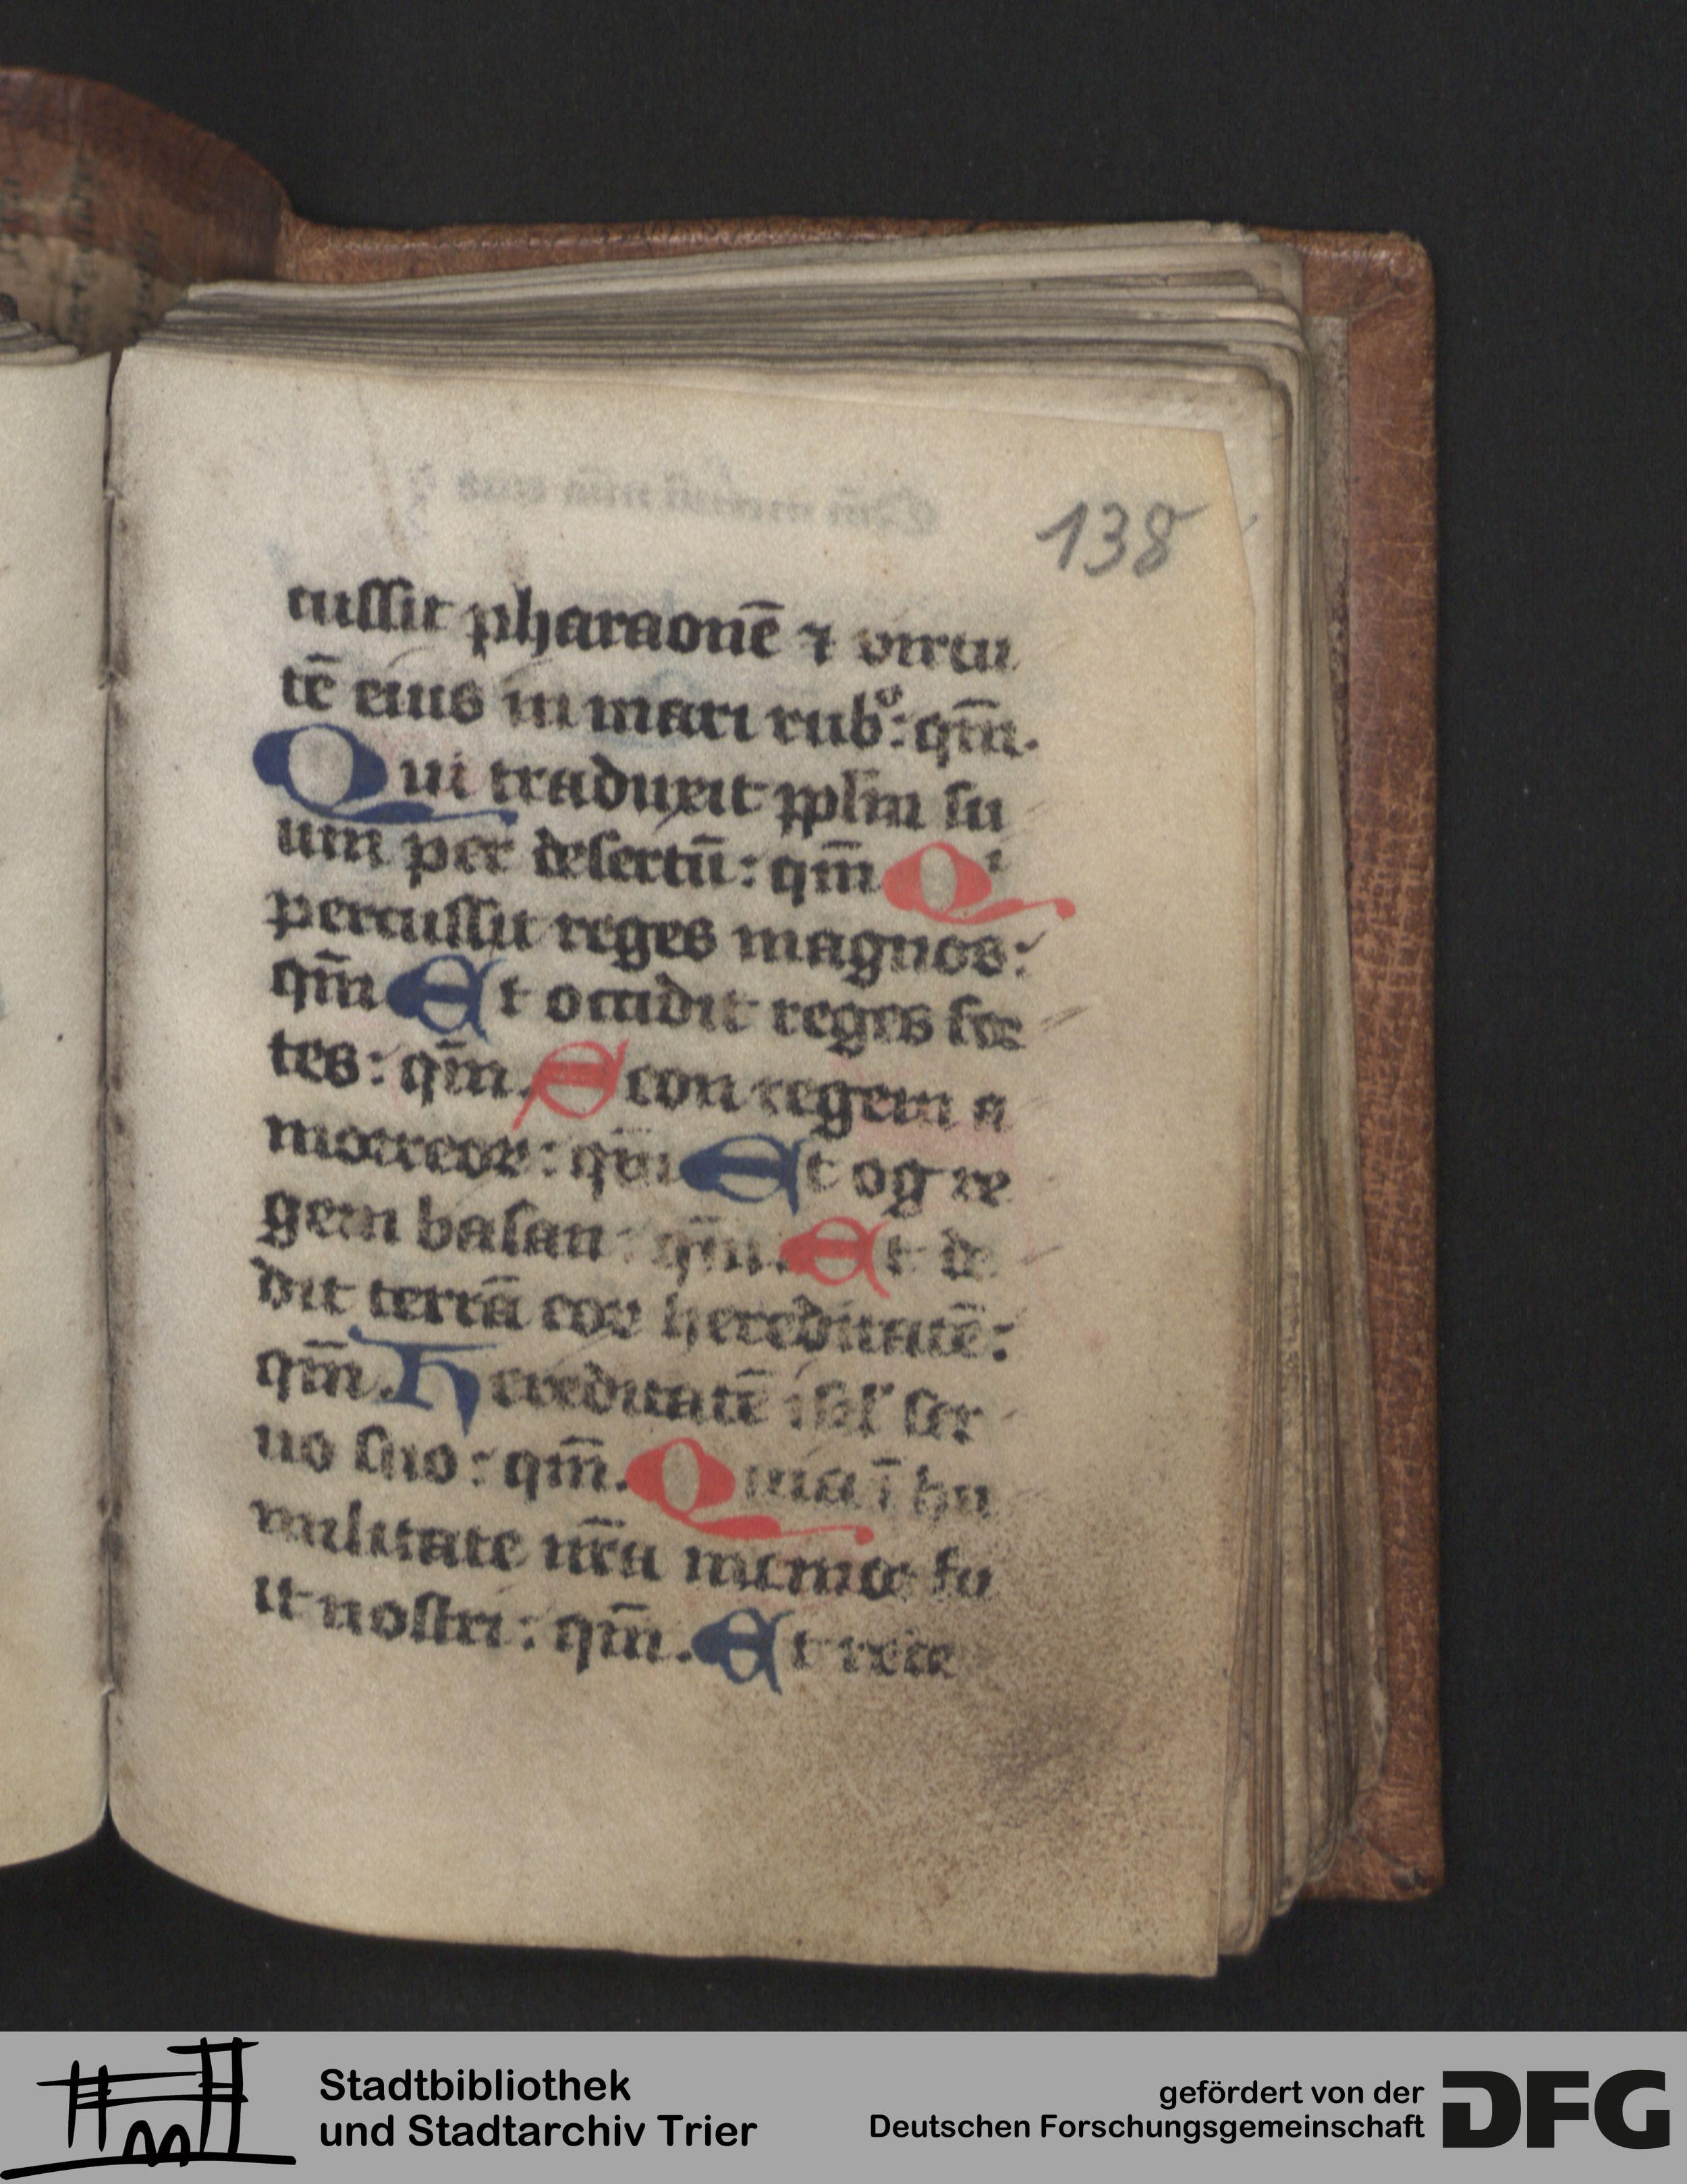 138
cussit pharaonē ⁊ virtu
tē eius in mari rubͦ: qm̄.
Qui traduxit pplm̄ su
um per desertū: qm̄ Qⁱ
percussit reges magnos:
qm̄ Et occidit reges for
tes: qm̄. Seon regem a
morreoꝝ: qm̄ Et og re
gem basan: qm̄. Et de
dit terrā eoꝝ hereditatē:
qm̄. Hereditatē isrl' ser
uo suo: qm̄. Quia ī hu
militate nr̄a memor fu
it nostri: qm̄. Et rede
Stadtbibliothek
und Stadtarchiv Trier
gefördert von der
Deutschen Forschungsgemeinschaft
DFG